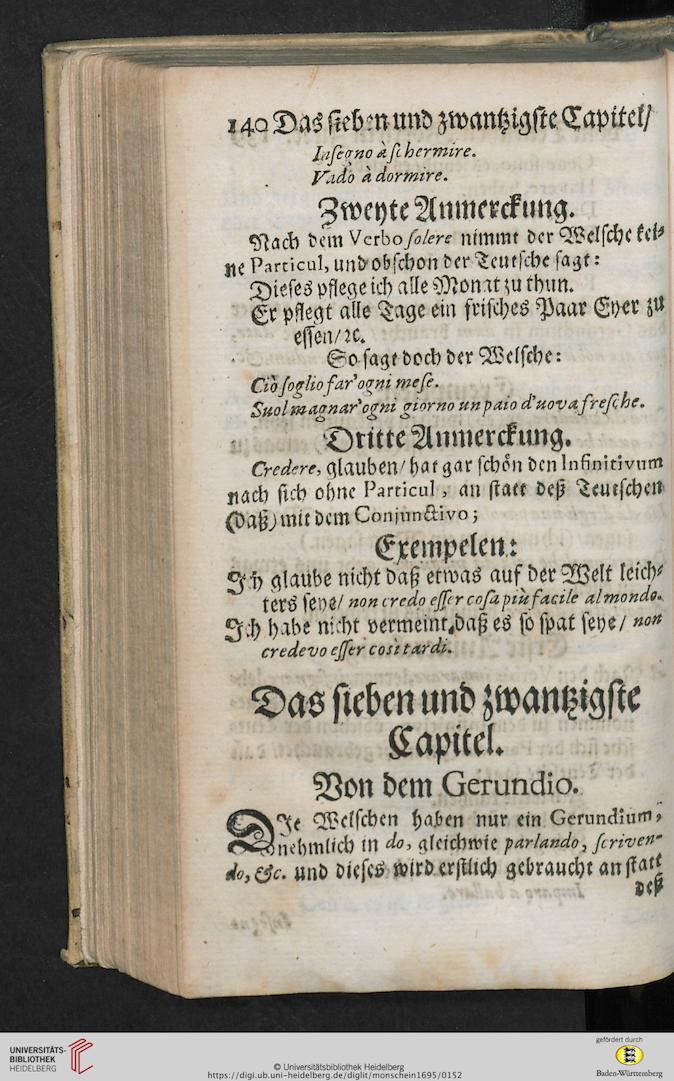 140 Das sieben und zwantzigste Capitel/
Insegno à schermire.
Vado à dormire.
Zweyte Anmerckung.
Nach dem Verbo solere nimmt der Welsche kei-
ne Particul, und obschon der Teutsche sagt:
Dieses pflege ich alle Monat zu thun.
Er pflegt alle Tage ein frisches Paar Eyer zu
essen/ ꝛc.
So sagt doch der Welsche:
Ciò soglio far' ogni mese.
Suol magnar' ogni giorno un paio d'uova fresche.
Dritte Anmerckung.
Credere, glauben/ hat gar schön den Infinitivum
nach sich ohne Particul, an statt deß Teutschen
(Daß) mit dem Conjunctivo;
Exempelen:
Ich glaube nicht daß etwas auf der Welt leich-
ters seye/ non credo esser cosa più facile al mondo.
Ich habe nicht vermeint, daß es so spat seye/ non
credevo esser così tardi.
Das sieben und zwantzigste
Capitel.
Von dem Gerundio.
DIe Welschen haben nur ein Gerundium,
nehmlich in do, gleichwie parlando, scriven-
do, &c. und dieses wird erstlich gebraucht an statt
deß
UNIVERSITÄTS-
BIBLIOTHEK
HEIDELBERG
© Universitätsbibliothek Heidelberg
https://digi.ub.uni-heidelberg.de/diglit/monschein1695/0152
gefördert durch
Baden-Württemberg